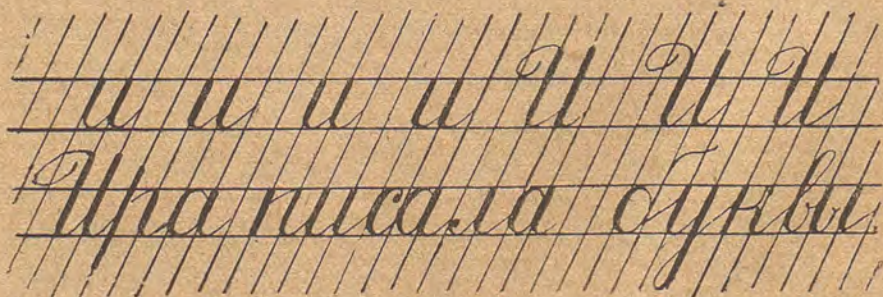 и и и и И И И
Ира писала буквы